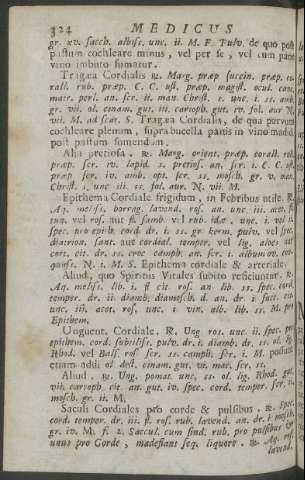 324 MEDICUS
gr. xv. sacch. albiss. unc. ii. M. F. Pulv. de quo post
pastum cochleare minus, vel per se, vel cum pane
vino imbuto sumatur.
Tragæa Cordialis ℞. Marg. præp succin. præp. co-
rall. rub. præp. C. C. ust. præp. magist. ocul. canc.
matr. perl. an. scr. ii. man. Christ. s. unc. i. ss. amb.
gr. vii. ol. cinam. gut. iii. caryoph. gut. iv. fol. aur N.
vii. M. ad scar. S. Tragæa Cordialis, de qua parvum
cochleare plenum, supra bucella panis in vino madid.
post pastum sumendam.
Alia pretiosa. ℞. Marg. orient. præp. corall. rub.
præp. scr. iv. lapid. s. pretios. an. scr. i. C. C. ust.
præp. scr. iv. amb. opt. scr. ss. mosch. gr. v. man.
Christ. s. unc. iii. ss. fol. aur. N. vii. M.
Epithema Cordiale frigidum, in Febribus utile. ℞.
Aq. meliss. borrag. lavend. ros. an. unc. iii. acet.
sun. vel ros. aut fl. samb. vel rub. idæ. unc. i. vel
spec. pro epith. cord. dr. i. ss. gr. kerm. pulv. vel spec.
diacron. sant. aut cordial. temper. vel lig. aloes aut
cort. cit. dr. ss. croc camph. an. scr. i. album ov.
quass. N. i. M. S. Epithema cordiale & arteriale.
Aliud, quo Spiritus Vitales subito reficiuntur. ℞.
Aq. meliss. lib. i. fl cit. ros. an. lib. ss. spec. cord.
temper. dr. ii. diamb. diamosch. d. an. dr. i succ. cit.
unc. iii. acet. ros. unc. i vin. alb. lib. ss. M. pro
Epithem.
Unguent. Cordiale. ℞. Ung. ros. unc. ii. spec. pro
epithem. cord. subtiliss. pulv. dr. i. diamb. dr. ss. ol.
Rhod. vel Bals. ros scr. ss. camph. scr. i. M. possunt
etiam addi ol. dest. cinam. gut. vi. mac. scr. ss.
Aliud. ℞. Ung. pomat. unc. ss ol. lig. Rhod. gut.
vii. caryoph. cit. an. gut. iv. spec. cord. temper. scr.
mosch. gr. ii. M.
Saculi Cordiales pro corde & pulsibus. ℞. Spec.
cord. temper. dr. iii. fl. ros. rub. lavend. an. dr. i. mosch.
gr. iv. M. f. 2. Saccul. cum sind. rub. pro pulsibus &
unus pro Corde, madefiant seq. liquore. ℞. Aq. ros.
lavend.